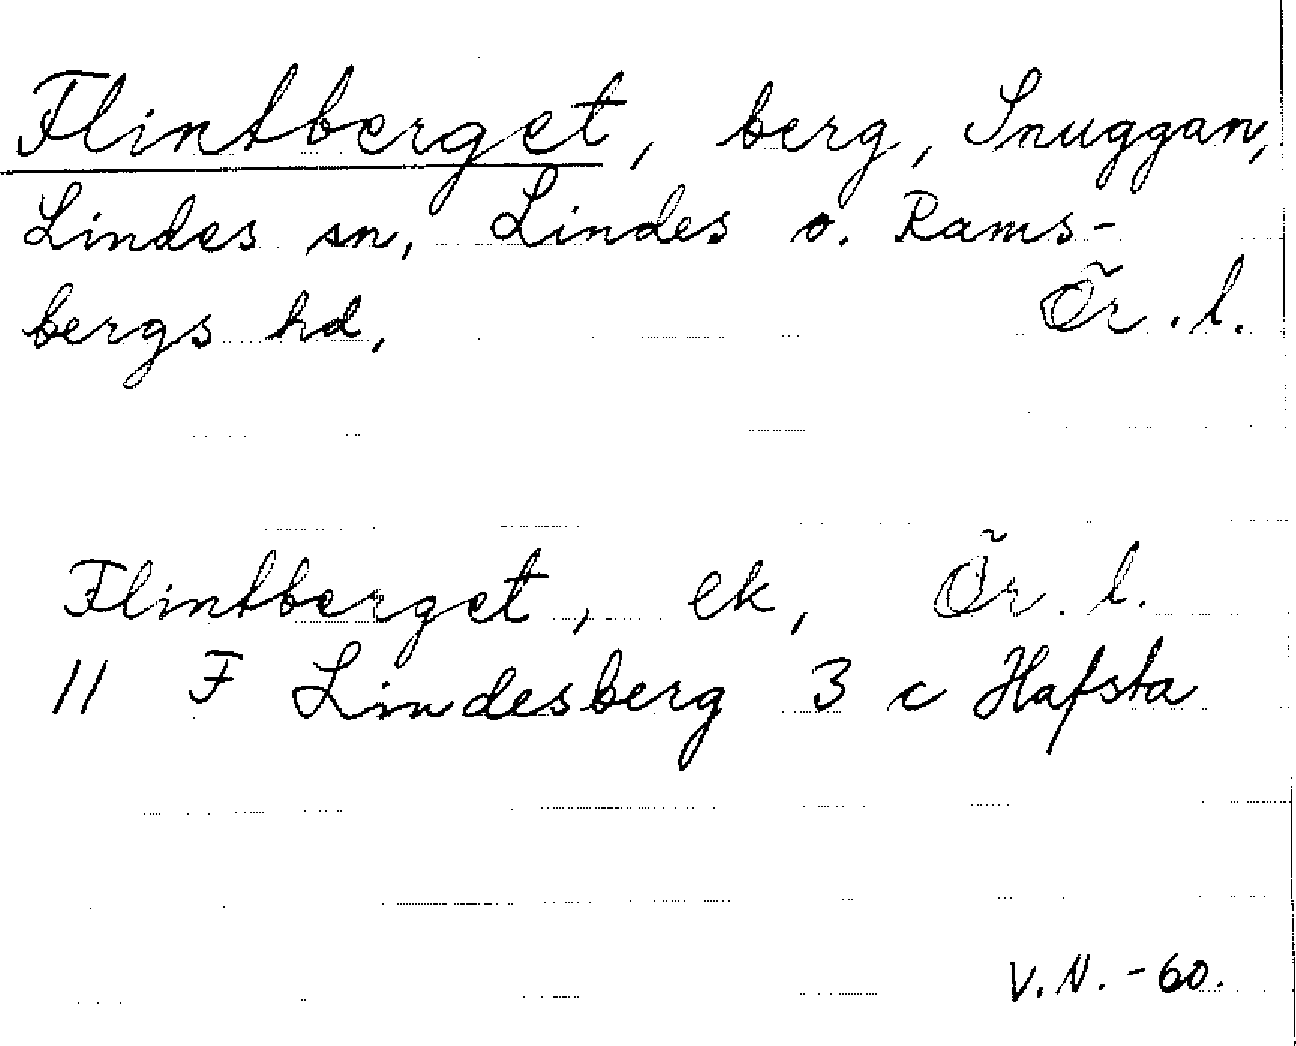 Flintberget, berg, Snuggan,
Lindes sn, Lindes o. Rams-
bergs hd, Ör. l.
Flintberget, ek, Ör. l.
11 F Lindesberg 3 c Hafsta
V.N. -60.